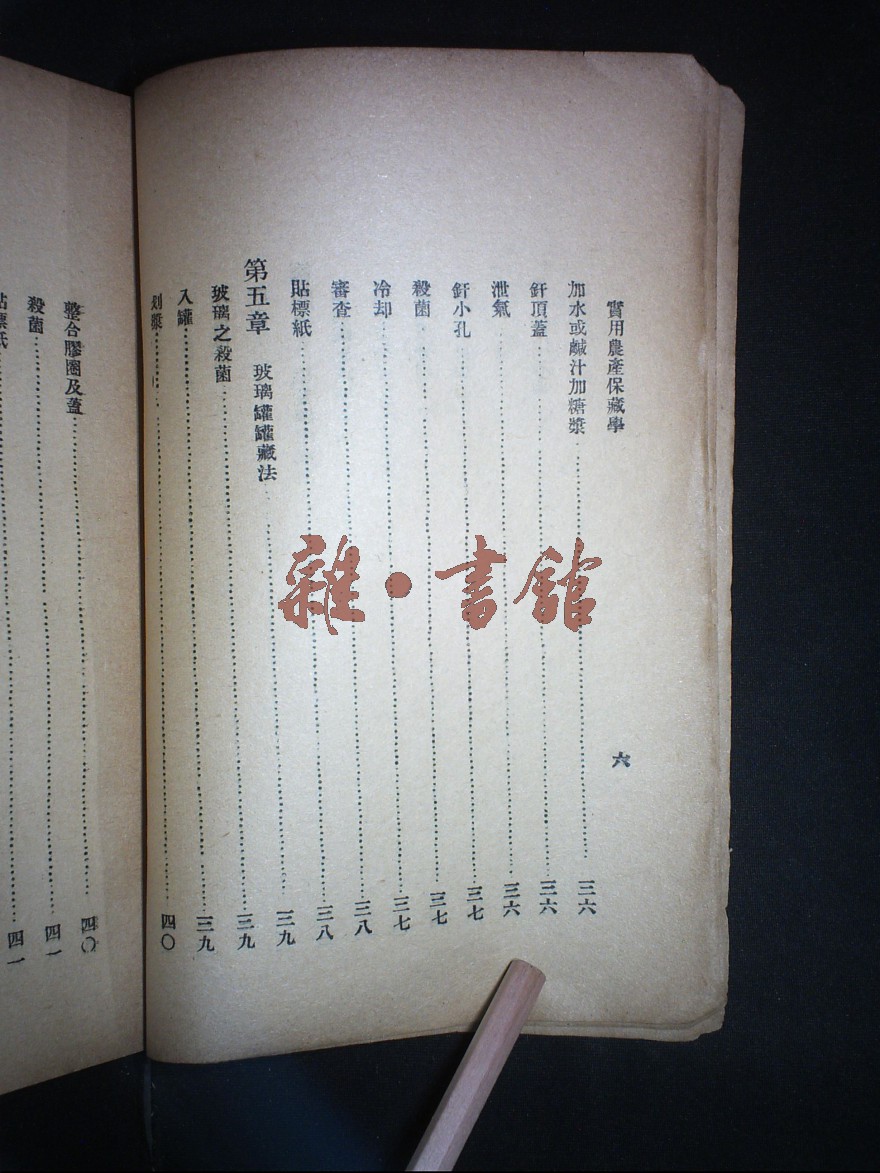 實用農產保藏學 六
加水或鹹汁加糖漿 三六
釬頂蓋 三六
泄氣 三六
釬小孔 三七
殺菌 三七
冷却 三七
審查 三八
貼標紙 三八
第五章 玻璃罐罐藏法 三九
玻璃之殺菌 三九
入罐 三九
划漿 四〇
整合膠圈及蓋 四〇
殺菌 四一
貼標紙 四一
雜·書館